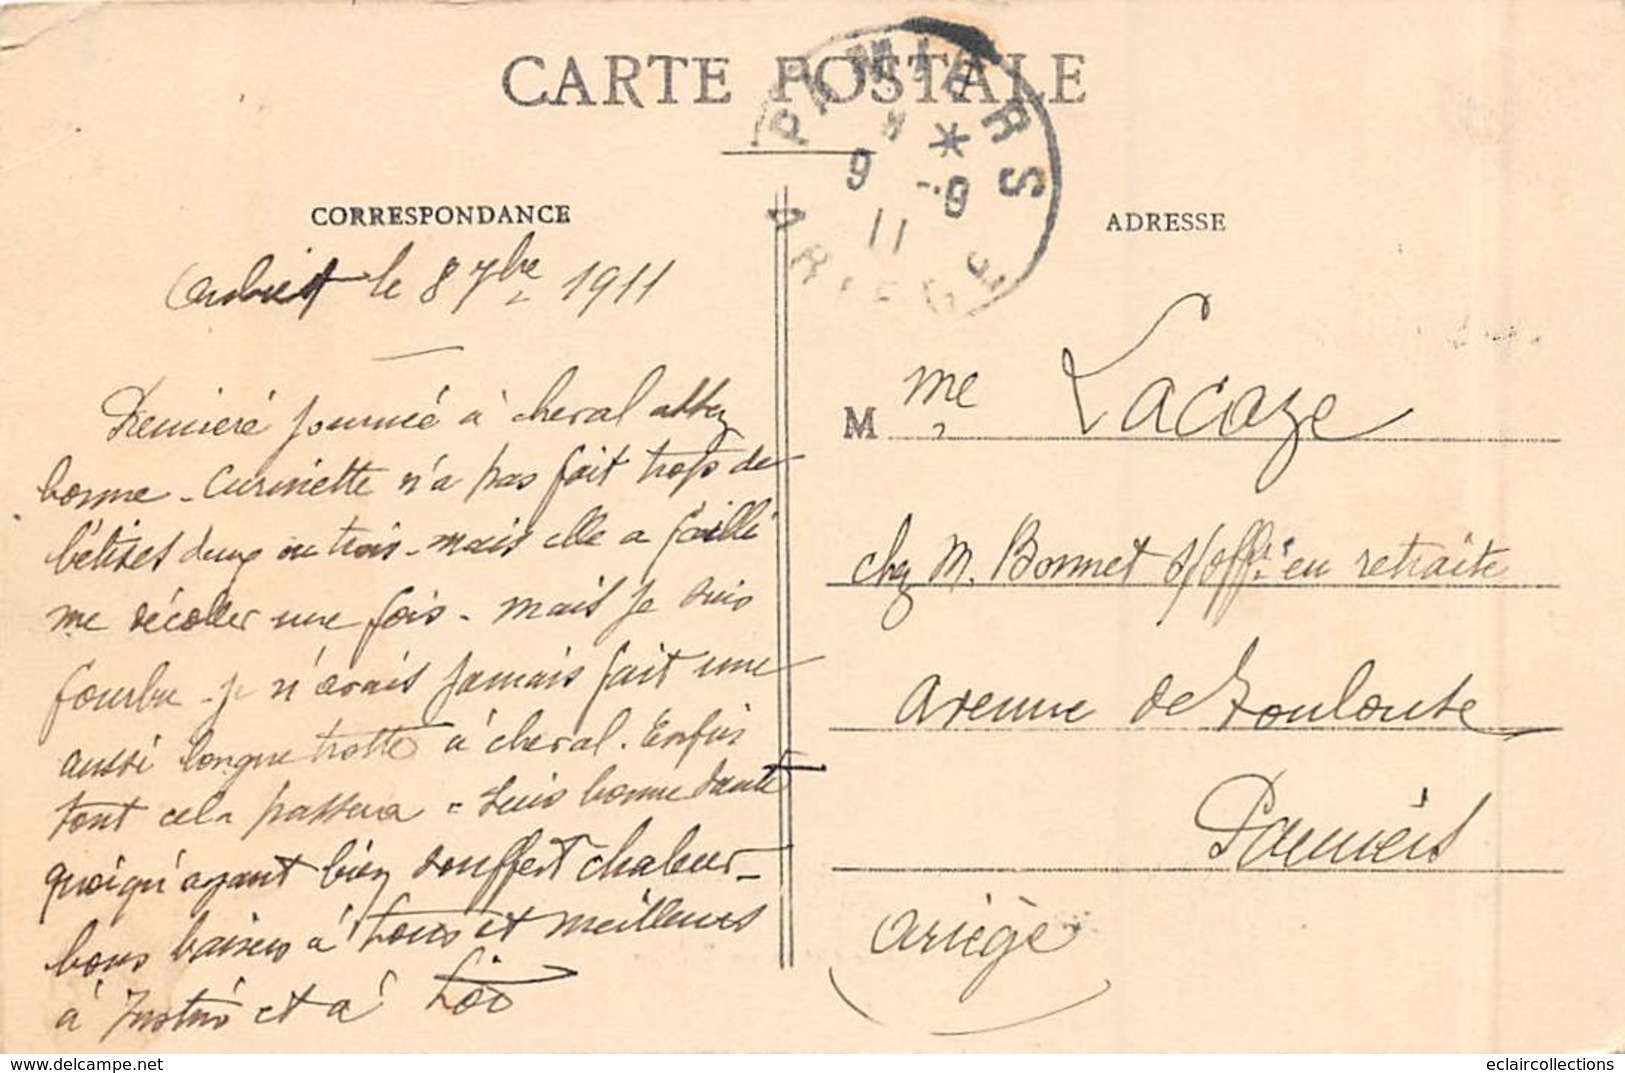 CARTE POSTALE
PAMIERS
ARIEGE
9 -9
11
CORRESPONDANCE
ADRESSE
le 8 7bre 1911
Première journée à cheval assez
bonne - Cusinette n'a pas fait trop de
bêtises deux ou trois - mais elle a failli
me décoller une fois - mais je suis
fourbu - je n'avais jamais fait une
aussi longue trotte à cheval. Enfin
tout cela passera - suis bonne santé
quoiqu'ayant bien souffert chaleur -
bons baisers à tous et meilleurs
à et à toi
M me Lacaze
chez M. Bonnet s/offr en retraite
avenue de Toulouse
Pamiers
Ariège
www.delcampe.net
eclaircollections